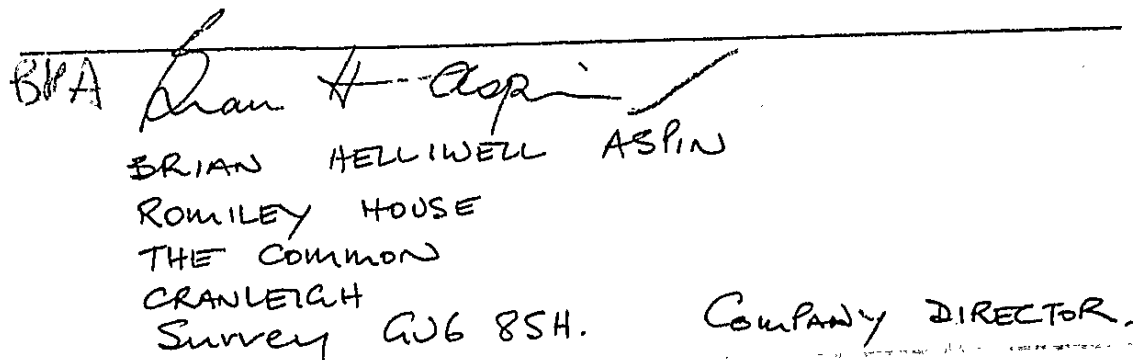 BHA Brian H Aspin
BRIAN HELLIWELL ASPIN
ROMILEY HOUSE
THE COMMON
CRANLEIGH
Surrey GU6 8SH. COMPANY DIRECTOR.